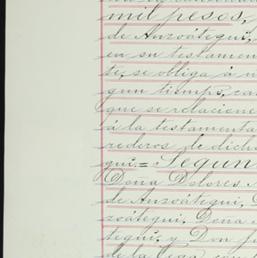 mil pesos,
de Anzoátegui,
en su testamen
te, se obliga á n
gun tiempo, ca
que se relacione
á la testamenta
rederos de dicho
gui.= Segun
Doña Dolores
de Anzoátegui, D
zoátegui, Doña
tegui, y Don J
de la Vega, con